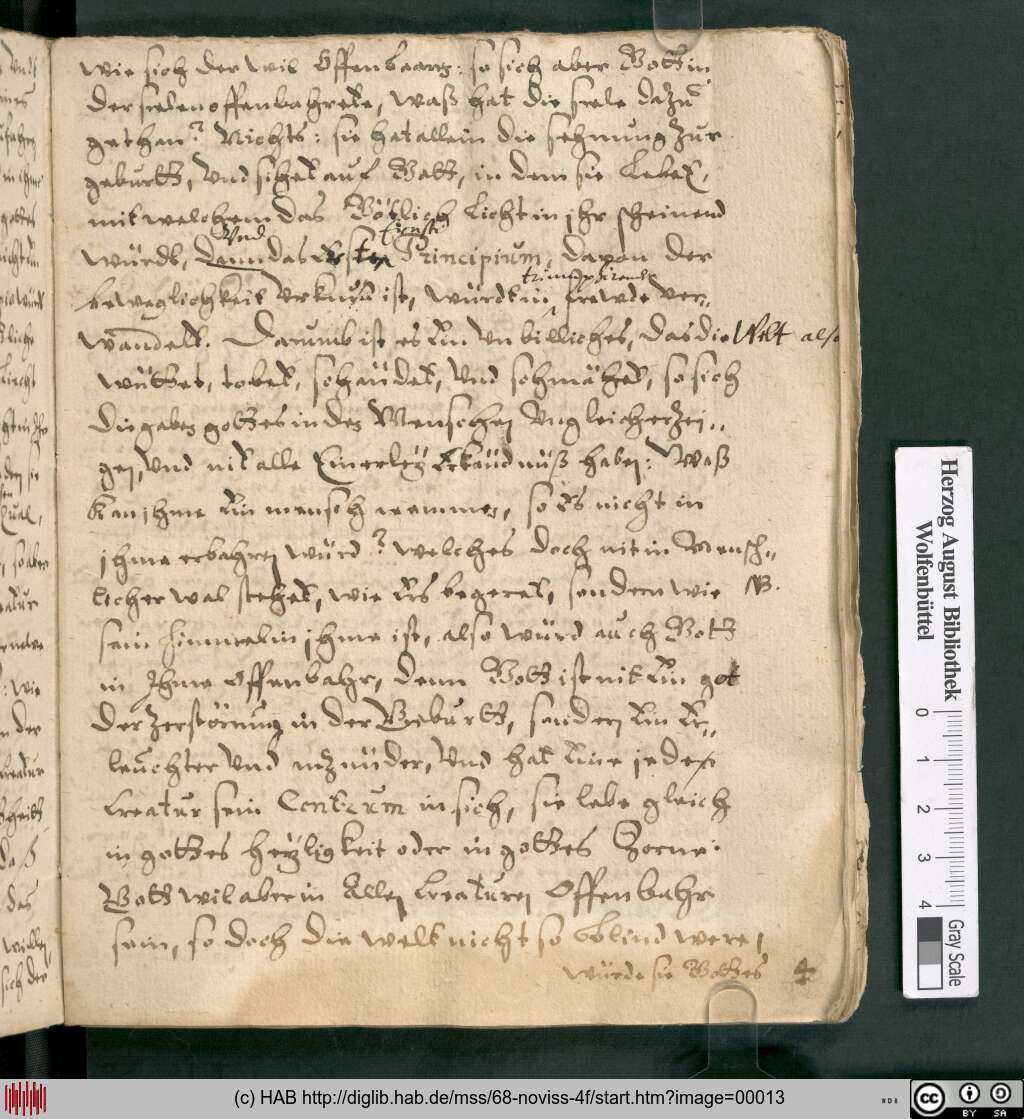 wie sich der wil Offenbaarz: so sich aber Gott in
der seelen offenbahrete, waß hat die seele dazu
gethan? Nichts: sie hat allein die sehnung zur
geburtt, und sihet auf Gott, in dem sie lebet,
mit welchem das Götlich licht in ihr scheinend
würdt, Und dann das Erste finster Principium, davon der
beweglichkeit Urkund ist, würdt in triumphirende frewde ver„
wandelt. Darumb ist es Ein Unbilliches, das die Welt also
wüttet, tobet, schändet, und schmähet, so sich
die gaben gottes in den Menschen Ungleich erzei„
gen, und nit alle Einerley Erkändnüß haben: Waß
kan ihme Ein mensch nemmen, so Es nicht in
ihme erbahren würd? welches doch nit in Mensch„
licher wal stehet, wie Ers begeret, sondern wie NB.
sein himmel in ihme ist, also würd auch Gott
in Ihme Offenbahr, denn Gott ist nit Ein got
der zerstörung in der Geburtt, sondern Ein Er„
leuchter und anzünder, und hat Eine jede
Creatur sein Centrum in sich, sie lebe gleich
in gottes heyligkeit oder in gottes Zorne:
Gott wil aber in Allen Creaturen Offenbahr
sein, so doch die welt nicht so blind were,
würde sie Gottes
Herzog August Bibliothek
Wolfenbüttel
0 1 2 3 4
Gray Scale
(c) HAB http://diglib.hab.de/mss/68-noviss-4f/start.htm?image=00013
cc BY SA